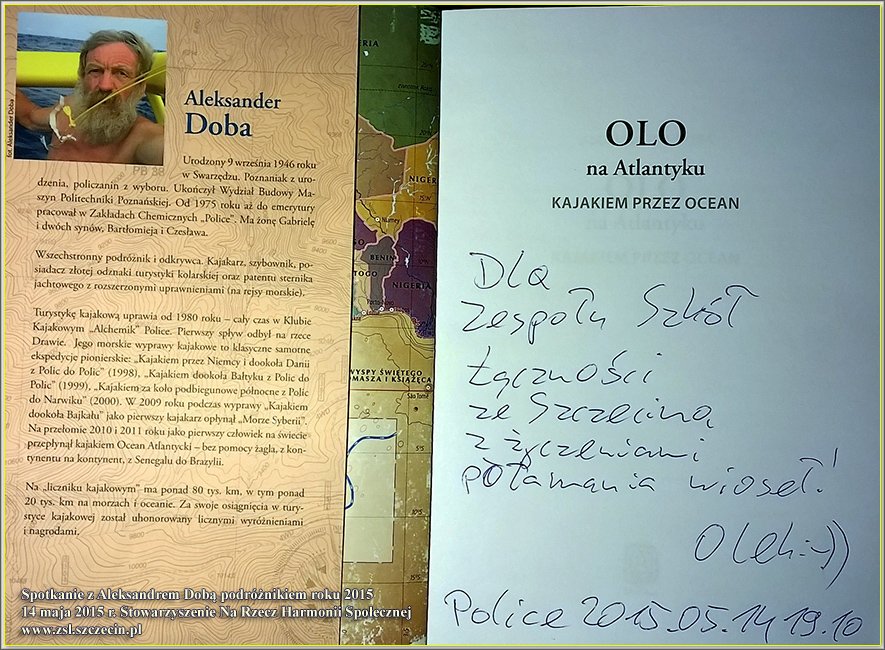 fot. Aleksander Doba
Aleksander
Doba
Urodzony 9 września 1946 roku
w Swarzędzu. Poznaniak z uro-
dzenia, policzanin z wyboru. Ukończył Wydział Budowy Ma-
szyn Politechniki Poznańskiej. Od 1975 roku aż do emerytury
pracował w Zakładach Chemicznych „Police". Ma żonę Gabrielę
i dwóch synów, Bartłomieja i Czesława.
Wszechstronny podróżnik i odkrywca. Kajakarz, szybownik, po-
siadacz złotej odznaki turystyki kolarskiej oraz patentu sternika
jachtowego z rozszerzonymi uprawnieniami (na rejsy morskie).
Turystykę kajakową uprawia od 1980 roku – cały czas w Klubie
Kajakowym „Alchemik" Police. Pierwszy spływ odbył na rzece
Drawie. Jego morskie wyprawy kajakowe to klasyczne samotne
ekspedycje pionierskie: „Kajakiem przez Niemcy i dookoła Danii
z Polic do Polic" (1998), „Kajakiem dookoła Bałtyku z Polic do
Polic" (1999), „Kajakiem za koło podbiegunowe północne z Polic
do Narwiku" (2000). W 2009 roku podczas wyprawy „Kajakiem
dookoła Bajkału" jako pierwszy kajakarz opłynął „Morze Syberii".
Na przełomie 2010 i 2011 roku jako pierwszy człowiek na świecie
przepłynął kajakiem Ocean Atlantycki – bez pomocy żagla, z kon-
tynentu na kontynent, z Senegalu do Brazylii.
Na „liczniku kajakowym" ma ponad 80 tys. km, w tym ponad
20 tys. km na morzach i oceanie. Za swoje osiągnięcia w tury-
styce kajakowej został uhonorowany licznymi wyróżnieniami
i nagrodami.
NIGER
Niamey
BENIN
TOGO
NIGERIA
Porto-Novo
WYSPY ŚWIĘTEGO
TOMASZA I KSIĄŻĘCA
São Tomé
OLO
na Atlantyku
KAJAKIEM PRZEZ OCEAN
Dla
Zespołu Szkół
Łączności
ze Szczecina
z życzeniami
połamania wioseł!
Olek:-))
Police 2015.05.14 19.10
Spotkanie z Aleksandrem Dobą podróżnikiem roku 2015
14 maja 2015 r. Stowarzyszenie Na Rzecz Harmonii Społecznej
www.zsl.szczecin.pl